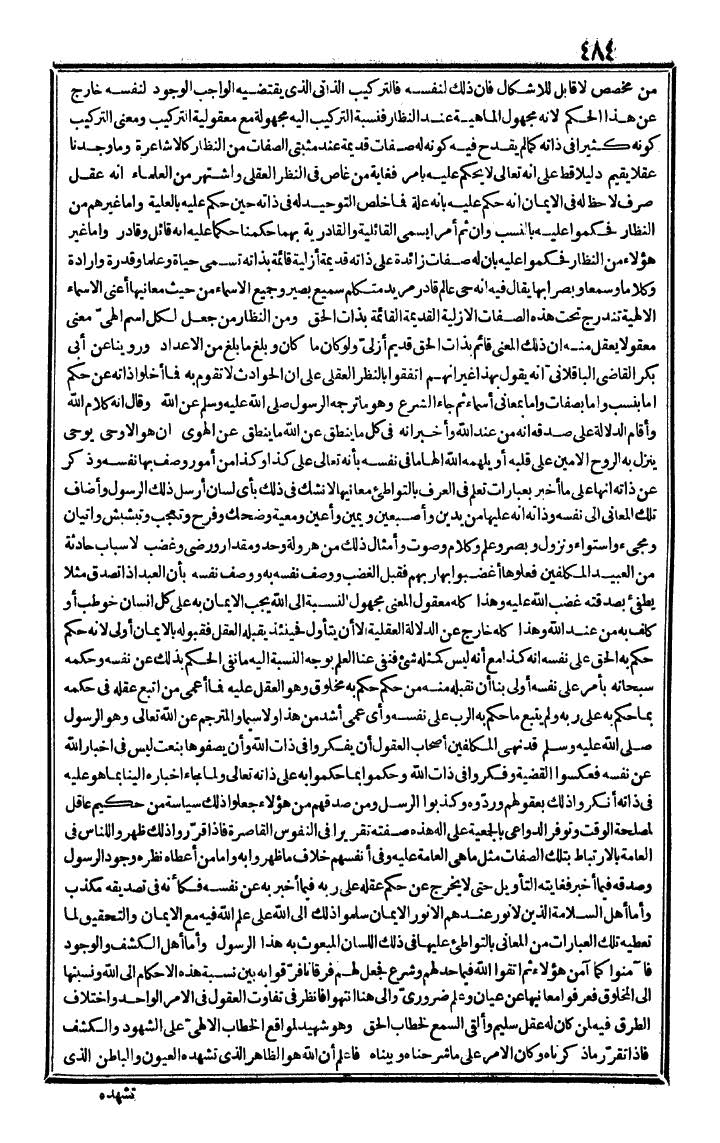 ٤٨٤
من مخصص لا قابل للاشكال فان ذلك لنفسه فالتركيب الذاتى الذى يقتضيه الواجب الوجود لنفسه خارج
عن هذا الحكم لانه مجهول الماهية عند النظار فنسبة التركيب اليه مجهولة مع معقولية التركيب ومعنى التركيب
كونه كثيرا فى ذاته كمالم يقدح فيه كونه له صفات قديمة عند مثبتى الصفات من النظار كالاشاعرة وما وجدنا
عقلا يقيم دليلا قط على انه تعالى لا يحكم عليه بامر فغاية من غاص فى النظر العقلى واشتهر من العلماء انه عقل
صرف لا حظ له فى الايمان انه حكم عليه بانه علة فما خلص التوحيد له فى ذاته حين حكم عليه بالعلية واما غيرهم من
النظار فحكموا عليه بالنسب وان ثم أمر ايسمى القائلية والقادرية بهما حكمنا حكما عليه انه قائل وقادر واما غير
هؤلاء من النظار فحكموا عليه بان له صفات زائدة على ذاته قديمة أزلية قائمة بذاته تسمى حياة وعلما وقدرة وارادة
وكلاما وسمعا وبصرا بها يقال فيه انه حى عالم قادر مريد متكلم سميع بصير وجميع الاسماء من حيث معانيها أعنى الاسماء
الالهية تندرج تحت هذه الصفات الازلية القديمة القائمة بذات الحق ومن النظار من جعل لكل اسم الهىّ معنى
معقولا يعقل منه ان ذلك المعنى قائم بذات الحق قديم أزلىّ ولو كان ما كان وبلغ ما بلغ من الاعداد وروينا عن أبى
بكر القاضى الباقلانى انه يقول بهذا غير انهم اتفقوا بالنظر العقلى على ان الحوادث لا تقوم به فما أخلوا ذاته عن حكم
اما بنسب واما بصفات واما بمعانى أسماء ثم جاء الشرع وهو ما ترجمه الرسول صلى الله عليه وسلم عن الله وقال انه كلام الله
وأقام الدلالة على صدقه انه من عند الله وأخبر انه فى كل ما ينطق عن الله ما ينطق عن الهوى ان هو الا وحى يوحى
ينزل به الروح الامين على قلبه أو يلهمه الله الهاما فى نفسه بأنه تعالى على كذا وكذا من أمور وصف بها نفسه وذكر
عن ذاته انها على ما أخبر بعبارات تعلم فى العرف بالتواطئ معانيها لا نشك فى ذلك بأى لسان أرسل ذلك الرسول وأضاف
تلك المعانى الى نفسه وذاته انه عليها من يدين وأصبعين ويمين وأعين ومعية وضحك وفرح وتعجب وتبشبش واتيان
ومجىء واستواء ونزول وبصر وعلم وكلام وصوت وأمثال ذلك من هرولة وحد ومقدار ورضى وغضب لاسباب حادثة
من العبيد المكلفين فعلوها أغضبوا بها ربهم فقبل الغضب ووصف نفسه به ووصف نفسه بأن العبد اذا تصدق مثلا
يطفئ بصدقته غضب الله عليه وهذا كله معقول المعنى مجهول النسبة الى الله يجب الايمان به على كل انسان خوطب أو
كلف به من عند الله وهذا كله خارج عن الدلالة العقلية الا أن يتأول فحينئذ يقبله العقل فقبوله بالايمان أولى لانه حكم
حكم به الحق على نفسه انه كذا مع أنه ليس كمثله شئ فنفى عنا العلم بوجه النسبة اليه ما نفى الحكم بذلك عن نفسه وحكمه
سبحانه بأمر على نفسه أولى بنا أن نقبله منه من حكم حكم به مخلوق وهو العقل عليه فما أعمى من اتبع عقله فى حكمه
بما حكم به على ربه ولم يتبع ما حكم به الرب على نفسه وأى عمى أشد من هذا ولا سيما والمترجم عن الله تعالى وهو الرسول
صلى الله عليه وسلم قد نهى المكلفين أصحاب العقول أن يفكروا فى ذات الله وأن يصفوها بنعت ليس فى اخبار الله
عن نفسه فعكسوا القضية وفكروا فى ذات الله وحكموا بما حكموا به على ذاته تعالى ولما جاء اخباره الينا بما هو عليه
فى ذاته أنكروا ذلك بعقولهم وردّوه وكذبوا الرسل ومن صدقهم من هؤلاء جعلوا ذلك سياسة من حكيم عاقل
لمصلحة الوقت وتوفر الدواعى بالجمعية على اله هذه صفته تقريرا فى النفوس القاصرة فاذا قرّروا ذلك ظهروا للناس فى
العامة بالارتباط بتلك الصفات مثل ما هى العامة عليه وفى أنفسهم خلاف ما ظهروا به واما من أعطاه نظره وجود الرسول
وصدقه فيما أخبر فغايته التأويل حتى لا يخرج عن حكم عقله على ربه فيما أخبر به عن نفسه فكأنه فى تصديقه مكذب
وأما أهل السلامة الذين لا نور عندهم الا نور الايمان سلموا ذلك الى الله على علم الله فيه مع الايمان والتحقيق لما
تعطيه تلك العبارات من المعانى بالتواطئ عليها فى ذلك اللسان المبعوث به هذا الرسول وأما أهل الكشف والوجود
فآمنوا كما آمن هؤلاء ثم اتقوا الله فيما حد لهم وشرع فجعل لهم فرقانا فرّقوا به بين نسبة هذه الاحكام الى الله ونسبتها
الى المخلوق فعرفوا معانيها عن عيان وعلم ضرورىّ والى هنا انتهوا فانظر فى تفاوت العقول فى الامر الواحد واختلاف
الطرق فيه لمن كان له عقل سليم وألقى السمع لخطاب الحق وهو شهيد لمواقع الخطاب الالهىّ على الشهود والكشف
فاذا تقرّر ما ذكرناه وكان الامر على ما شرحناه وبيناه فاعلم أن الله هو الظاهر الذى تشهده العيون والباطن الذى
تشهده